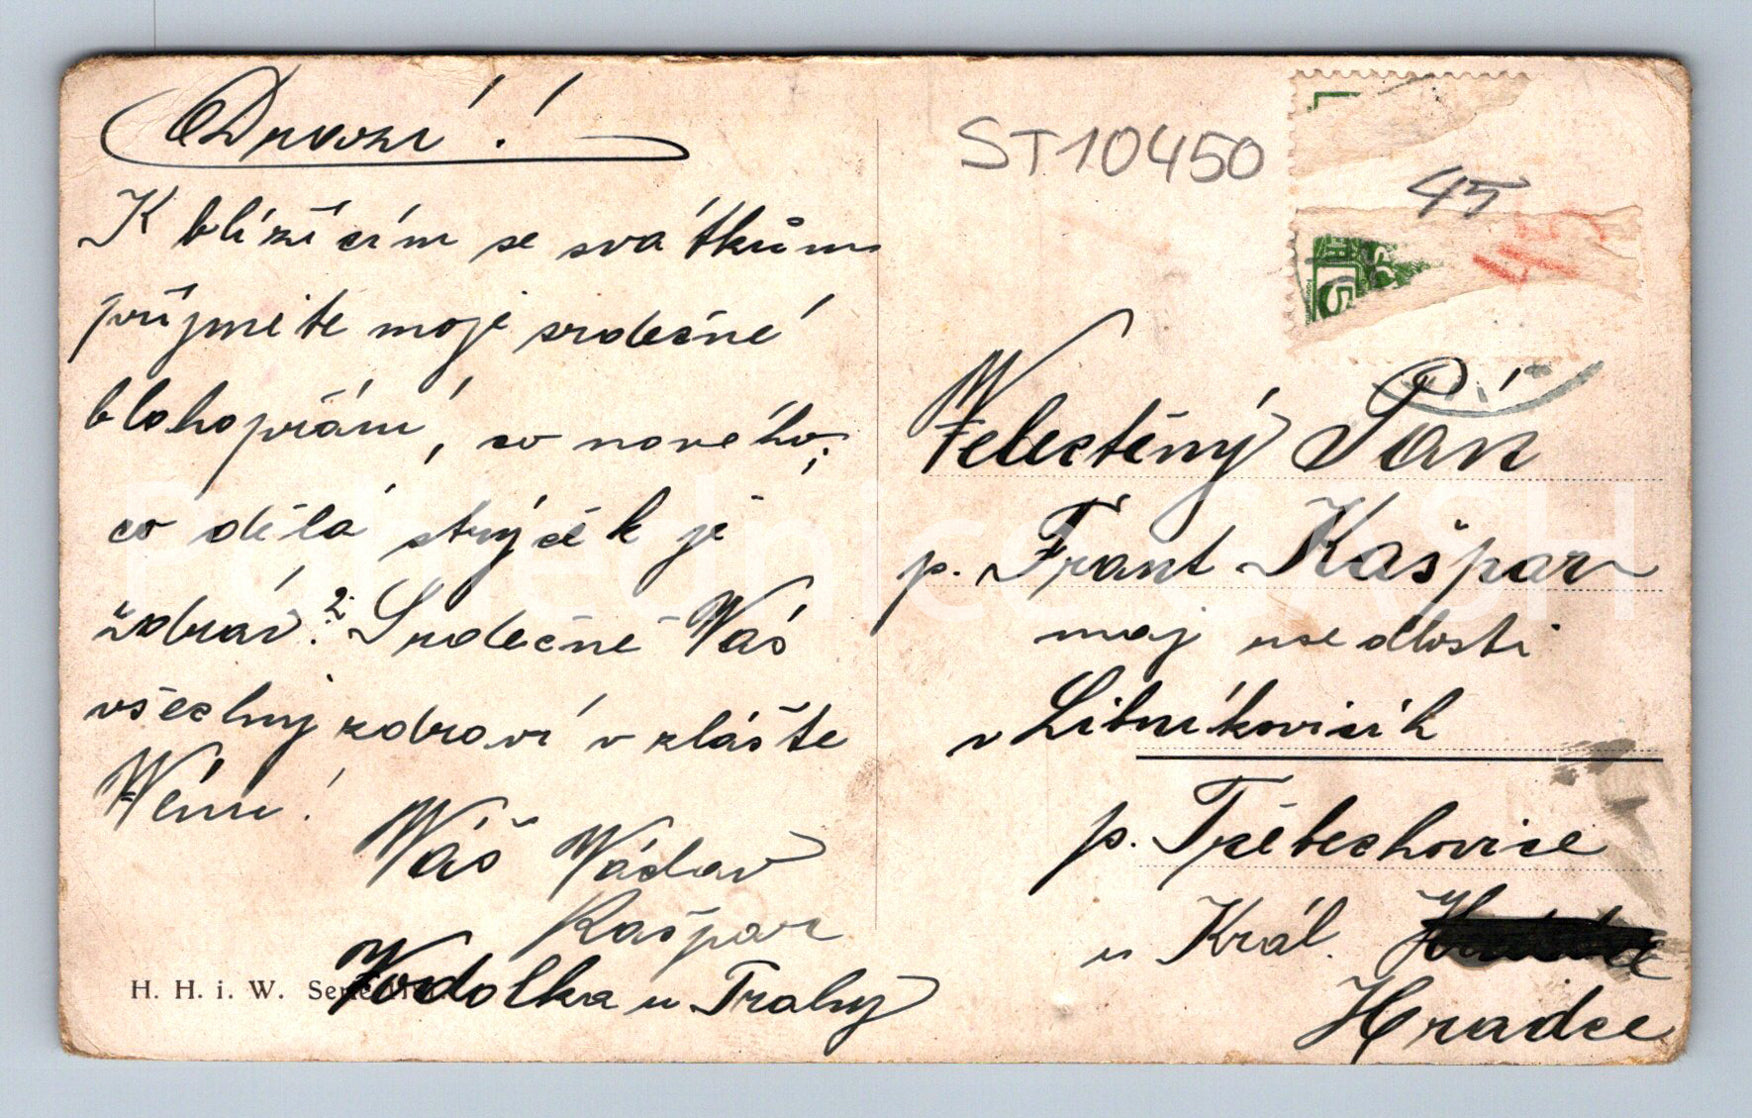 Drazí!
K blížícím se svátkům
přijměte moje srdečné
blahopřání, co nového;
co dělá strýček je
zdráv? Srdečně Vás
všechny zdraví v zlášte
Váš Václav
Kašpar
Vodolka u Prahy
H. H. i. W. Serie
ST10450
45
Velectěný Pán
p. Frant Kašpar
maj usedlosti
v Librníkovicích
p. Třebechovice
u Král.
Hradce